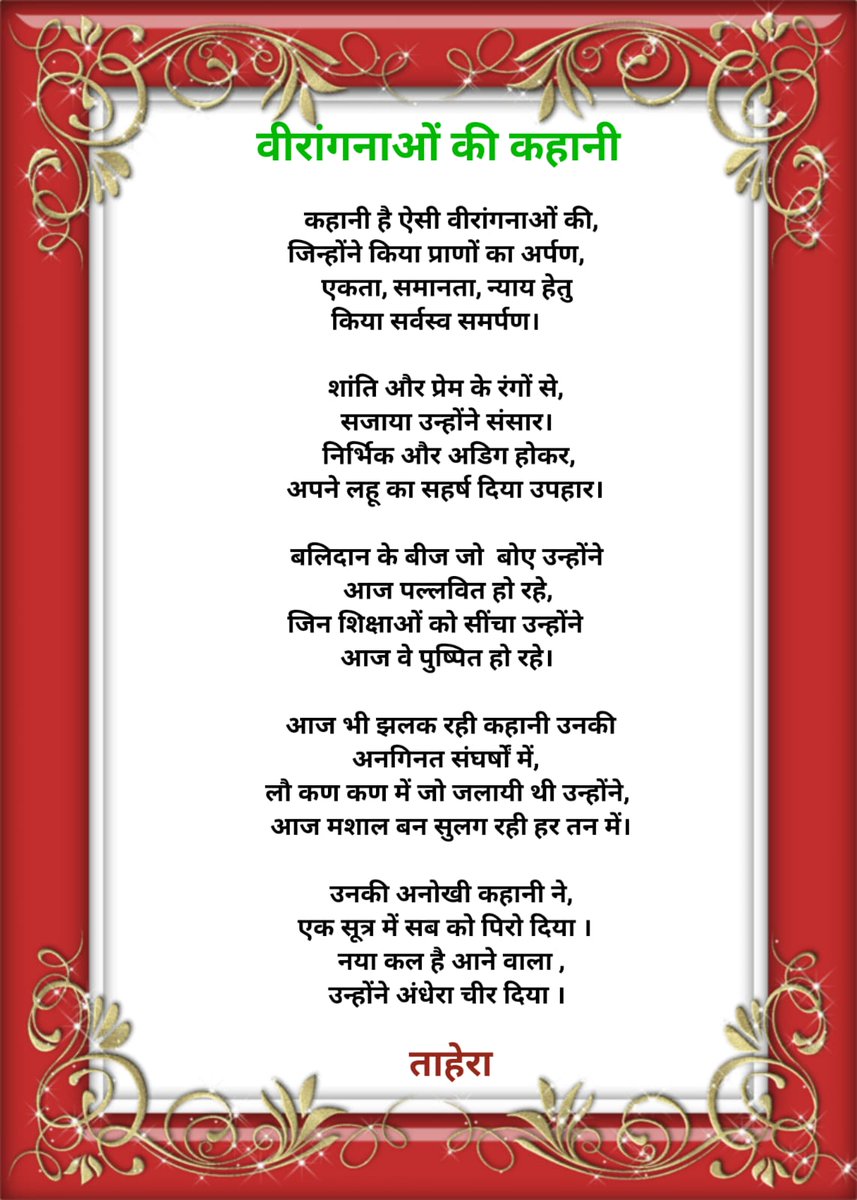 वीरांगनाओं की कहानी
कहानी है ऐसी वीरांगनाओं की,
जिन्होंने किया प्राणों का अर्पण,
एकता, समानता, न्याय हेतु
किया सर्वस्व समर्पण।
शांति और प्रेम के रंगों से,
सजाया उन्होंने संसार।
निर्भिक और अडिग होकर,
अपने लहू का सहर्ष दिया उपहार।
बलिदान के बीज जो बोए उन्होंने
आज पल्लवित हो रहे,
जिन शिक्षाओं को सींचा उन्होंने
आज वे पुष्पित हो रहे।
आज भी झलक रही कहानी उनकी
अनगिनत संघर्षों में,
लौ कण कण में जो जलायी थी उन्होंने,
आज मशाल बन सुलग रही हर तन में।
उनकी अनोखी कहानी ने,
एक सूत्र में सब को पिरो दिया ।
नया कल है आने वाला ,
उन्होंने अंधेरा चीर दिया ।
ताहेरा